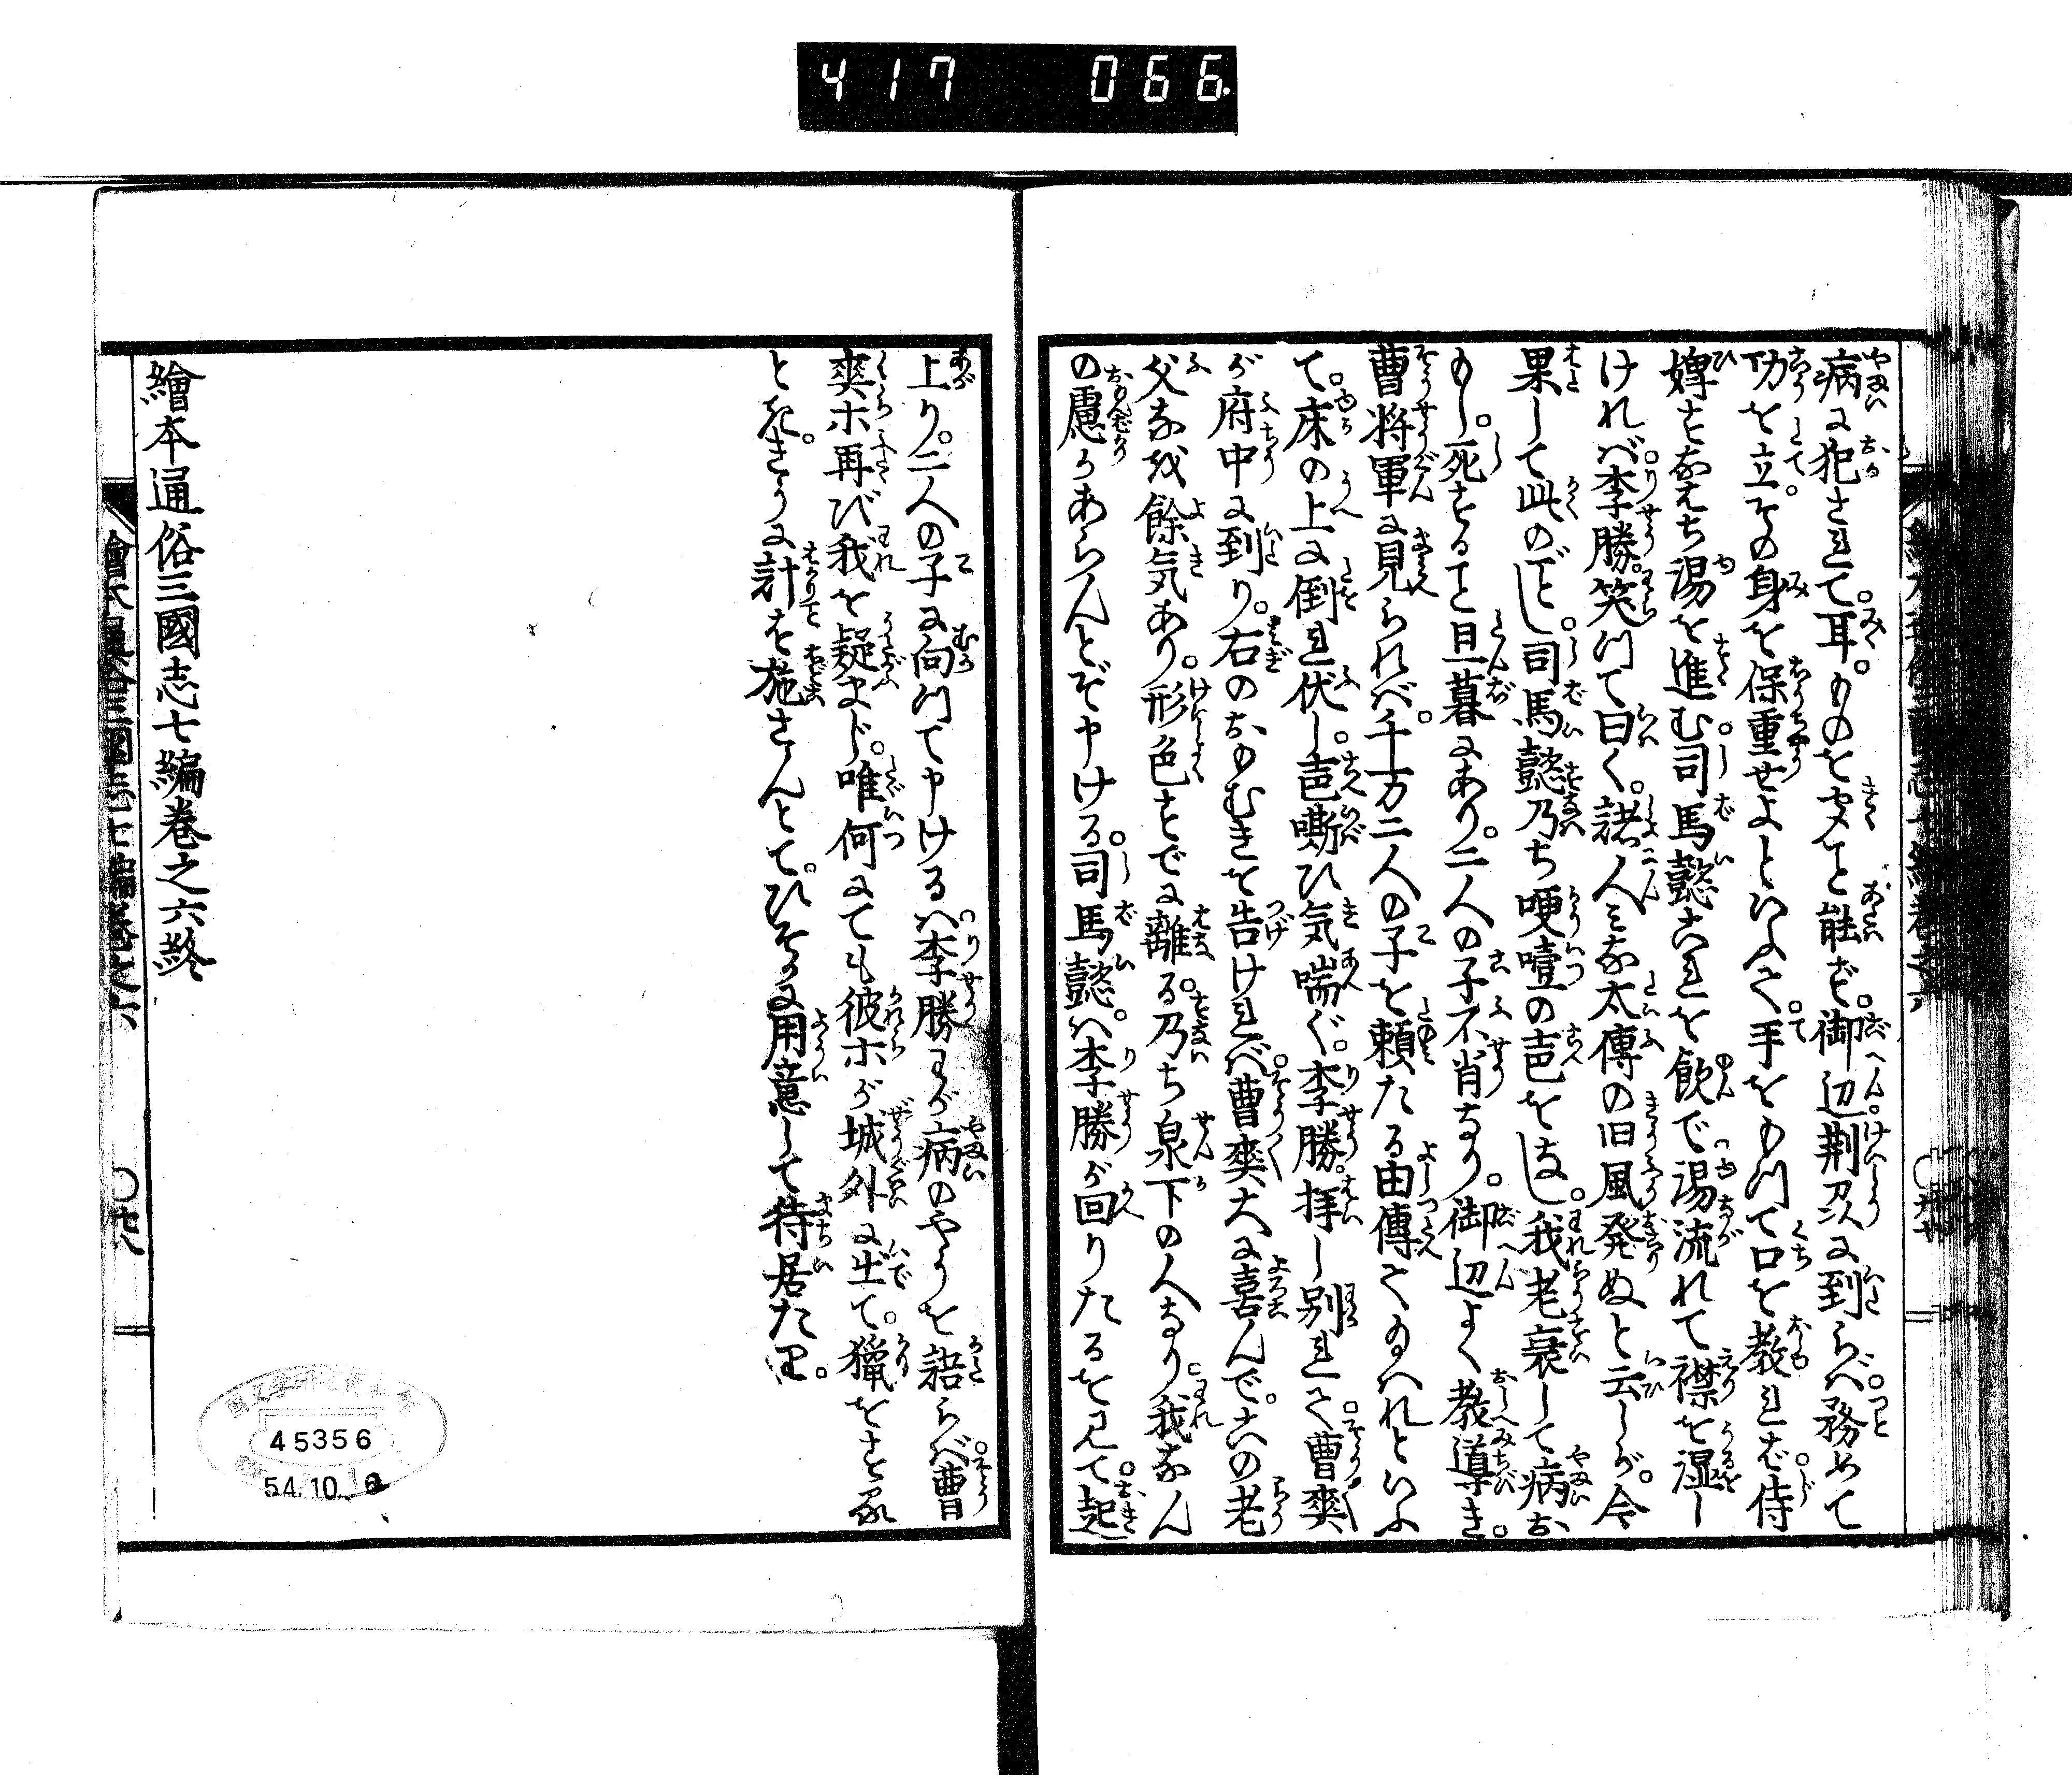 417 066.
病に犯されて。耳。ものを聞こと能ず。御辺荊州に到らバ。務めて
功を立。その身を保重せよといふて。手をもつて口を教れば。侍
婢すなはち湯を進む。司馬懿これを飲で。湯流れて襟を湿し
けれバ。李勝。笑つて曰く。諸人ミな太傅の旧風発ぬと云しが。今
果して此のごとし。司馬懿乃ち哽噎の声をなし。我老衰して病お
もし。死すること旦暮にあり。二人の子不肖なり。御辺よく教導き。
曹将軍に見られバ。千万二人の子を頼たる由傳てたまハれといふ
て。床の上に倒れ伏し。声嘶ひ気喘ぐ。李勝。拝し別れて。曹爽
が府中に到り。右のおもむきを告けれバ。曹爽大に喜んで。この老
父なほ餘気あり。形色すでに離る。乃ち泉下の人なり。我なん
の慮りかあらんとぞ申ける。司馬懿。ハ李勝が回りたるを見て。起
上り。二人の子に向つて申けるハ。李勝わが病のやうを語らバ。曹
爽ホ再び我を疑まじ。唯何にても彼ホが城外に出て。獵をする
とき。さらに計を施さんとて。ひそかに用意して待居たり。
繪本通俗三國志七編巻之六終
45356
54.10.